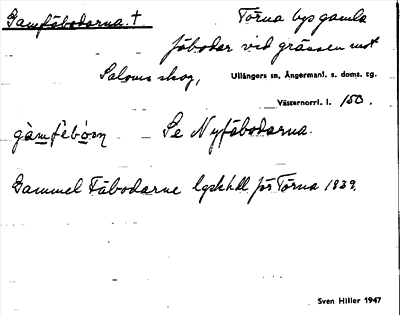 Gamfäbodarna. †
Törna bys gamla
fäbodar vid gränsen mot
Saloms skog,
Ullångers sn, Ångermanl. s. doms. tg.
Västernorrl. l. 150.
Se Nyfäbodarna.
Gammel Fäbodarne för Törna 1839.
Sven Hiller 1947